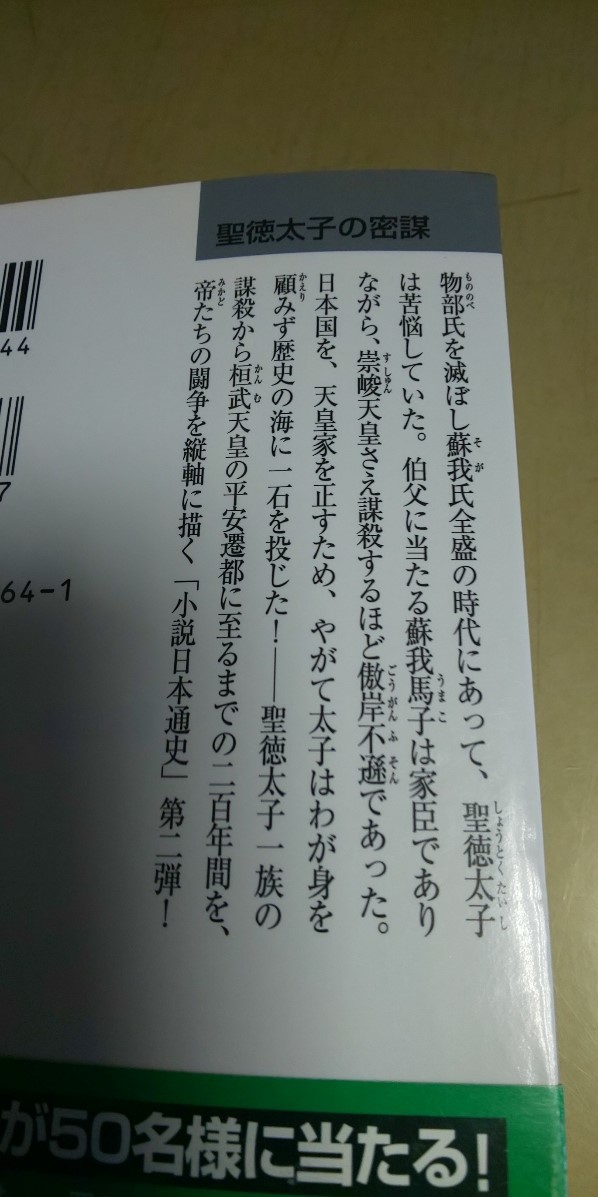 聖徳太子の密謀
物部氏を滅ぼし蘇我氏全盛の時代にあって、聖徳太子
は苦悩していた。伯父に当たる蘇我馬子は家臣であり
ながら、崇峻天皇さえ謀殺するほど傲岸不遜であった。
日本国を、天皇家を正すため、やがて太子はわが身を
顧みず歴史の海に一石を投じた！――聖徳太子一族の
謀殺から桓武天皇の平安遷都に至るまでの二百年間を、
帝たちの闘争を縦軸に描く「小説日本通史」第二弾！
44
7
64-1
が50名様に当たる！